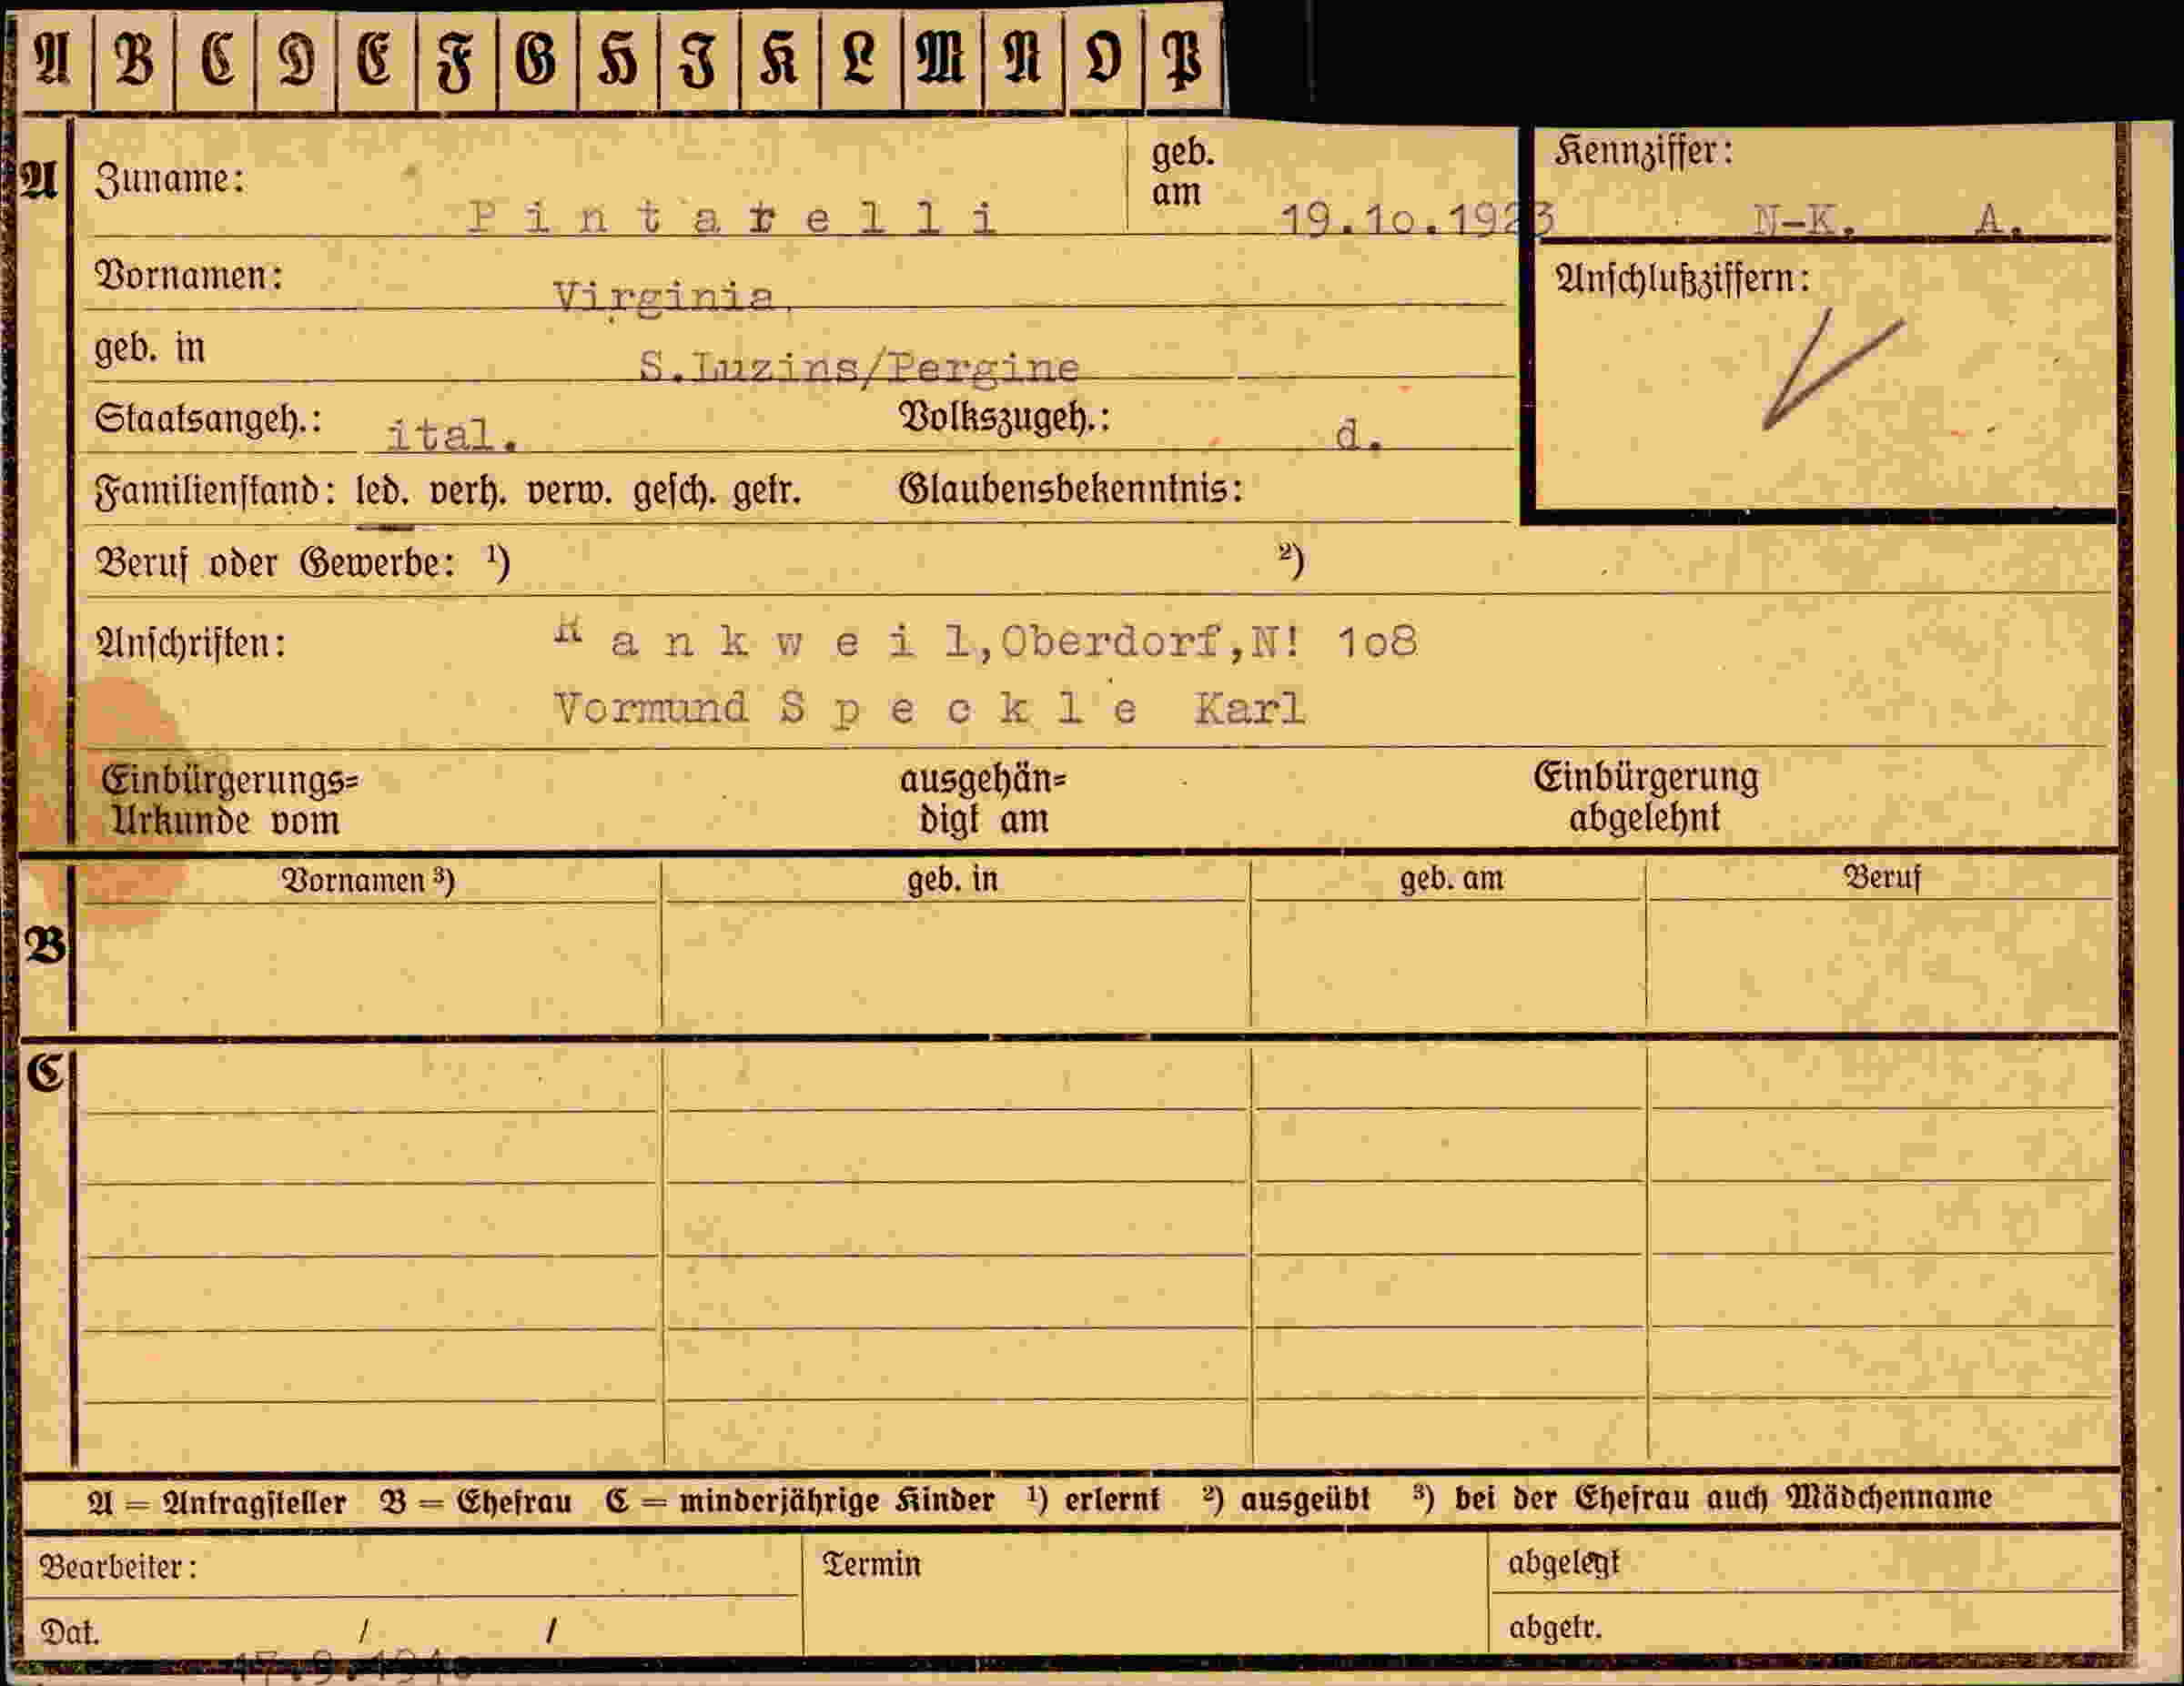 A B C D E F G H I K L M N O P
A Zuname: Pintarelli geb. am 19.1o.1923 Kennziffer: N-K. A.
Vornamen: Virginia, Anschlußziffern:
geb. in S.Luzins/Pergine
Staatsangeh.: ital. Volkszugeh.: d.
Familienstand: led. verh. verw. gesch. getr. Glaubensbekenntnis:
Beruf oder Gewerbe: ¹) ²)
Anschriften: R a n k w e i l,Oberdorf,N! 1o8
Vormund S p e c k l e Karl
Einbürgerungs= ausgehän= Einbürgerung
Urkunde vom digt am abgelehnt
Vornamen ³) geb. in geb. am Beruf
B
C
A = Antragsteller B = Ehefrau C = minderjährige Kinder ¹) erlernt ²) ausgeübt ³) bei der Ehefrau auch Mädchenname
Bearbeiter: Termin abgelegt
Dat. / / abgetr.